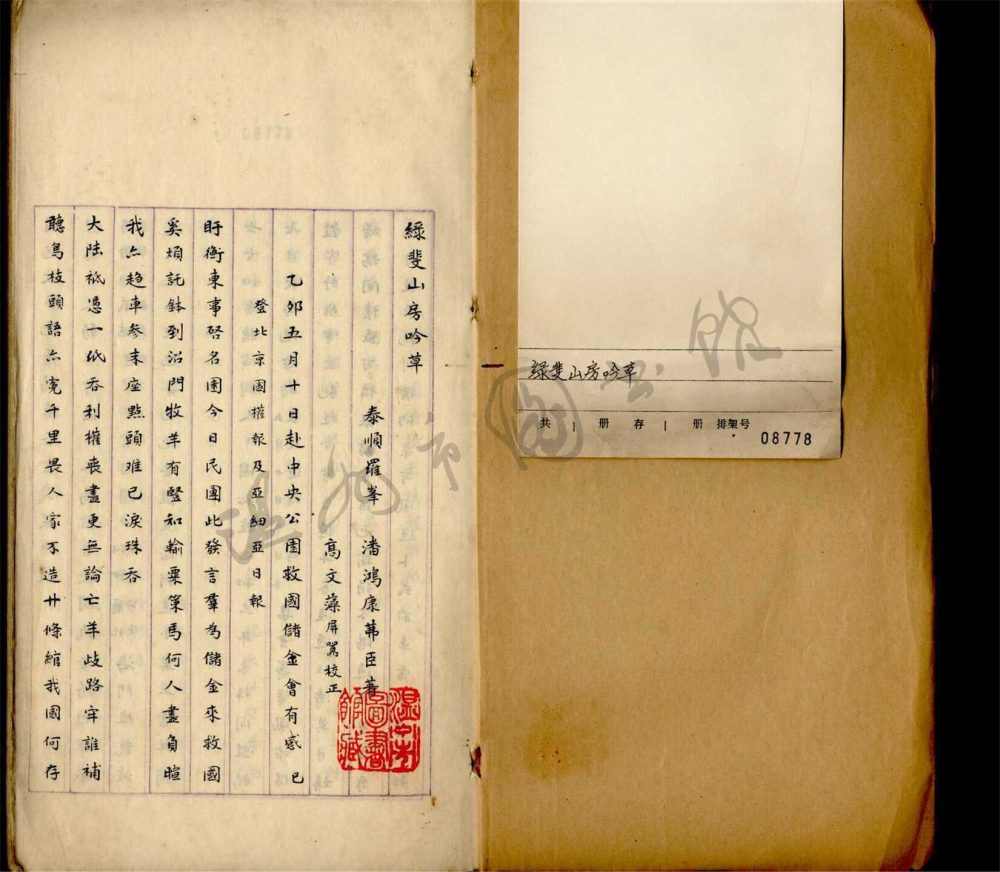 綠斐山房吟草
泰順羅峯 潘鴻康茀臣著
高文藻屏翯校正
乙卯五月十日赴中央公園救國儲金會有感 已
登北京國權報及亞細亞日報
盱衡東事啓名園今日民團此發言羣為儲金來救國
奚煩託鉢到沿門牧羊有豎和輸粟策馬何人盡負暄
我亦趋車參末座點頭难已淚珠吞
大陸祗憑一紙吞利權喪盡更無論亡羊歧路牢誰補
聽鳥枝頭語亦寃千里畏人家不造廿條綰我國何存
溫州市圖書館藏
綠斐山房吟草
共 1 册 存 1 册 排架号
08778
温州市图书馆